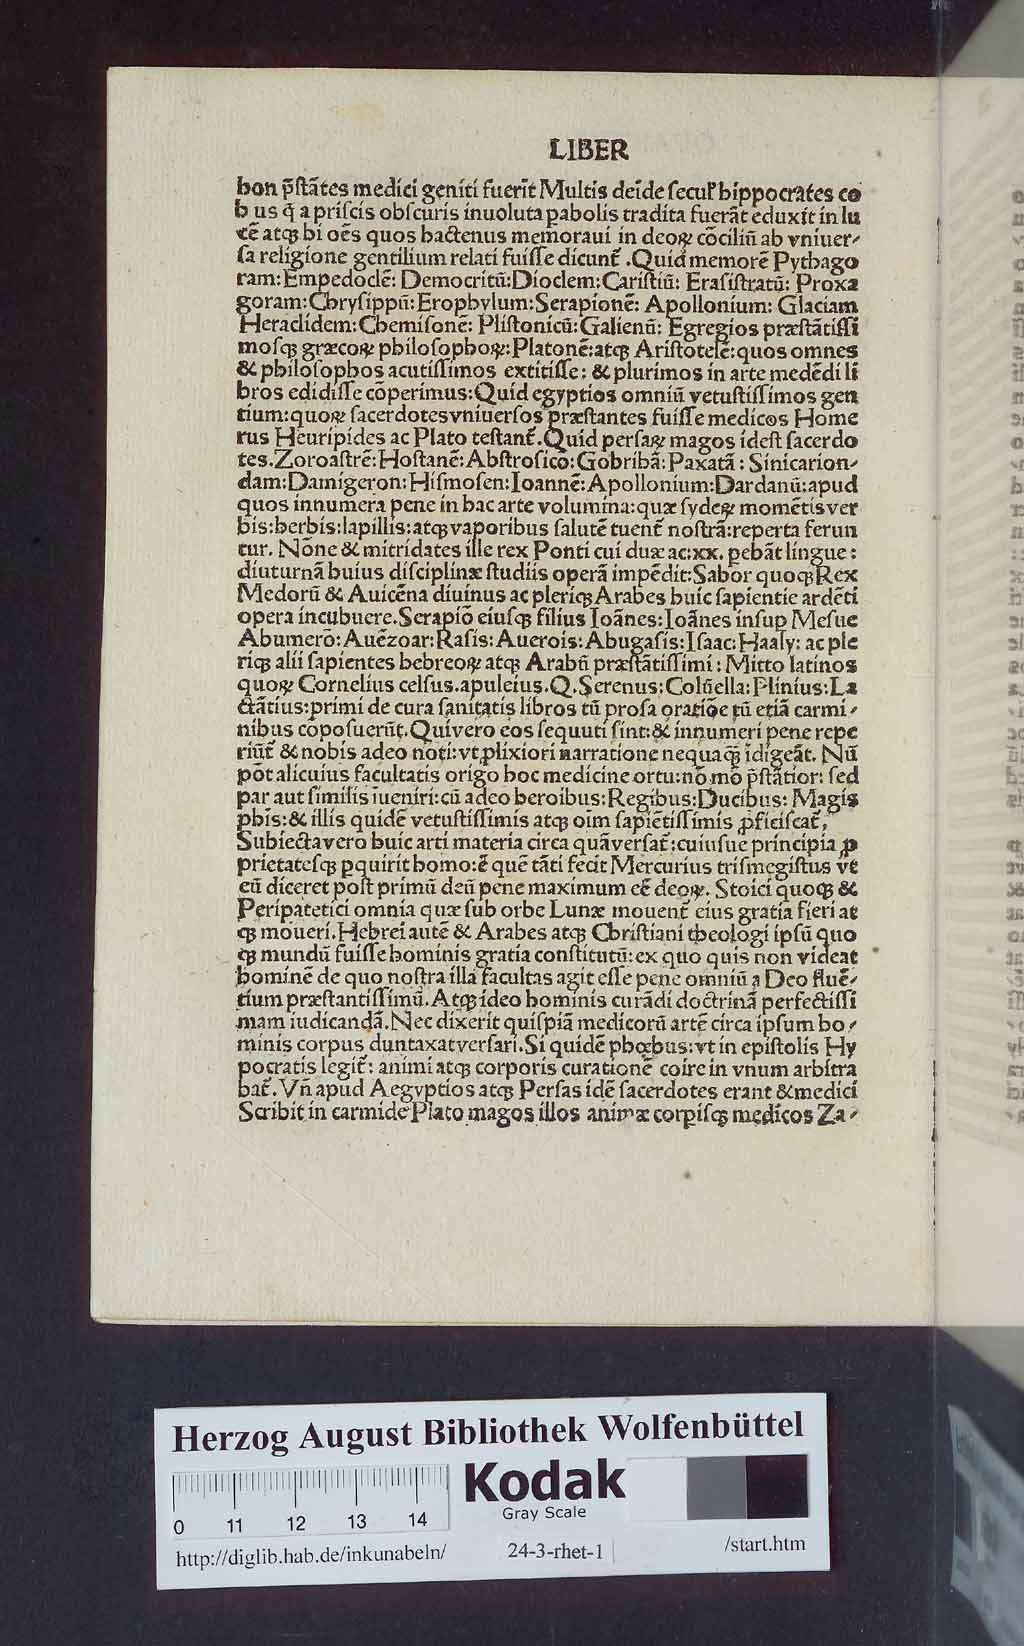 LIBER
hon p̄stātes medici geniti fuerīt Multis deīde ſecuľ hippocrates co
h us q̄ a priſcis obſcuris inuoluta pabolis tradita fuerāt eduxit in lu
cē atqꝫ hi oēs quos hactenus memoraui in deoꝝ cōciliū ab vniuer⸗
ſa religione gentilium relati fuiſſe dicunt̄ .Quid memorē Pythago
ram:Empedoclē: Democritū:Dioclem:Cariſtiū: Eraſiſtratū: Proxa
goram:Chryſippū:Erophylum:Serapionē: Apollonium: Glaciam
Heraclidem:Chemiſonē: Pliſtonicū:Galienū: Egregios præſtātiſſi
moſqꝫ græcoꝝ philoſophoꝝ:Platonē:atqꝫ Ariſtotelē:quos omnes
& philoſophos acutiſſimos extitiſſe: & plurimos in arte medēdi li
bros edidiſſe cōperimus:Quid egyptios omniū vetuſtiſſimos gen
tium:quoꝝ ſacerdotes vniuerſos præſtantes fuiſſe medicos Home
rus Heuripides ac Plato teſtant̄.Quid perſaꝝ magos ideſt ſacerdo
tes.Zoroaſtrē:Hoſtanē:Abſtroſico:Gobribā:Paxatā: Sinicarion⸗
dam:Damigeron:Hiſmoſen:Ioannē:Apollonium:Dardanū:apud
quos innumera pene in hac arte volumina:quæ ſydeꝝ momētis ver
bis:herbis:lapillis:atqꝫ vaporibus ſalutē tuent̄ noſtrā:reperta ferun
tur. Nōne & mitridates ille rex Ponti cui duæ ac:xx. ꝑebāt lingue:
diuturnā huius diſciplinæ ſtudiis operā impēdit:Sabor quoqꝫ Rex
Medorū & Auicēna diuinus ac pleriqꝫ Arabes huic ſapientie ardēti
opera incubuere.Serapiō eiuſqꝫ filius Ioānes:Ioānes inſup Meſue
Abumerō:Auēzoar:Raſis:Auerois:Abugaſis:Iſaac:Haaly: ac ple
riqꝫ alii ſapientes hebreoꝝ atqꝫ Arabū præſtātiſſimi: Mitto latinos
quoꝝ Cornelius celſus.apuleius.Q.Serenus:Colūella:Plinius:La
ctātius:primi de cura ſanitatis libros tū proſa oratiōe tū etiā carmi⸗
nibus cōpoſuerūt.Qui vero eos ſequuti ſint:& innumeri pene repe
riūt̄ & nobis adeo noti:vt ꝓlixiori narratione nequaqꝫ̄ īdigeāt. Nū
pōt alicuius facultatis origo hoc medicine ortu:nō mō p̄ſtātior: ſed
par aut ſimilis īueniri:cū adeo heroibus:Regibus:Ducibus: Magis
phis:& illis quidē vetuſtiſſimis atqꝫ oīm ſapiētiſſimis ꝓficiſcat̄,
Subiecta vero huic arti materia circa quā verſat̄:cuiuſue principia ꝓ
prietateſqꝫ ꝑquirit homo:ē quē tāti fecit Mercurius triſmegiſtus vt
eū diceret poſt primū deū pene maximum eē deoꝝ. Stoici quoqꝫ &
Peripatetici omnia quæ ſub orbe Lunæ mouent̄ eius gratia fieri at
qꝫ moueri.Hebrei autē & Arabes atqꝫ Chriſtiani theologi ipſū quo
qꝫ mundū fuiſſe hominis gratia conſtitutū: ex quo quis non videat
hominē de quo noſtra illa facultas agit eſſe pene omniū a Deo fluē⸗
tium præſtantiſſimū.Atqꝫ ideo hominis curādi doctrinā perfectiſſi
mam iudicandā.Nec dixerit quiſpiā medicorū artē circa ipſum ho⸗
minis corpus duntaxat verſari.Si quidē phœbus:vt in epiſtolis Hy
pocratis legit̄: animi atqꝫ corporis curationē coire in vnum arbitra
bat̄. Vn̄ apud Aegyptios atqꝫ Perſas idē ſacerdotes erant & medici
Scribit in carmide Plato magos illos animæ corꝑiſqꝫ medicos Za⸗
Herzog August Bibliothek Wolfenbüttel
Kodak
Gray Scale
0 11 12 13 14
http://diglib.hab.de/inkunabeln/ 24-3-rhet-1 /start.htm